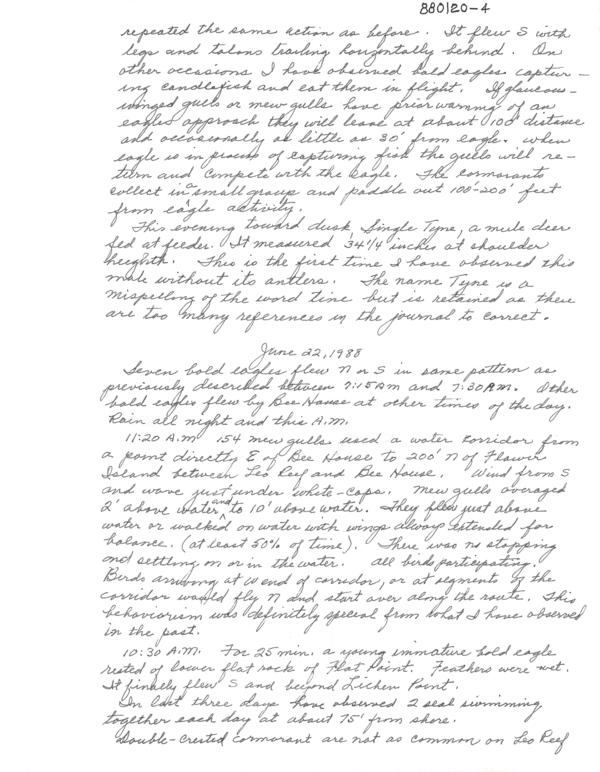 880120-4
repeated the same action as before. It flew S with
legs and talons trailing horizontally behind. On
other occasions I have observed bald eagles captur-
ing candlefish and eat them in flight. If glaucous-
winged gulls or mew gulls have prior warning of an
eagles approach they will leave at about 100' distance
and occasionally as little as 30' from eagle. When
eagle is in process of capturing fish the gulls will re-
turn and compete with the eagle. The cormorants
collect in a small group and paddle out 100-200' feet
from eagle activity.
This evening toward dusk, Single Tyne, a mule deer
fed at feeder. It measured 34 1/4 inches at shoulder
heighth. This is the first time I have observed this
male without its antlers. The name Tyne is a
mispelling of the word tine but is retained as there
are too many references in the journal to correct.
June 22, 1988
Seven bald eagles flew N or S in same pattern as
previously described between 7:15 AM and 7:30 A.M. Other
bald eagles flew by Bee House at other times of the day.
Rain all night and this A.M.
11:20 A.M 154 mew gulls used a water corridor from
a point directly E of Bee House to 200' N of Flower
Island between Leo Reef and Bee House. Wind from S
and wave just under white-caps. Mew gulls averaged
2' above water and to 10' above water. They flew just above
water or walked on water with wings always extended for
balance. (at least 50% of time). There was no stopping
and settling on or in the water. All birds participating.
Birds arriving at W end of corridor, or at segments of the
corridor would fly N and start over along the route. This
behaviorism was definitely special from what I have observed
in the past.
10:30 A.M. For 25 min. a young immature bald eagle
rested of lower flat rock of Flat Point. Feathers were wet.
It finally flew S and beyond Lichen Point.
In last three days have observed 2 seal swimming
together each day at about 75' from shore.
Double-crested cormorant are not as common on Leo Reef